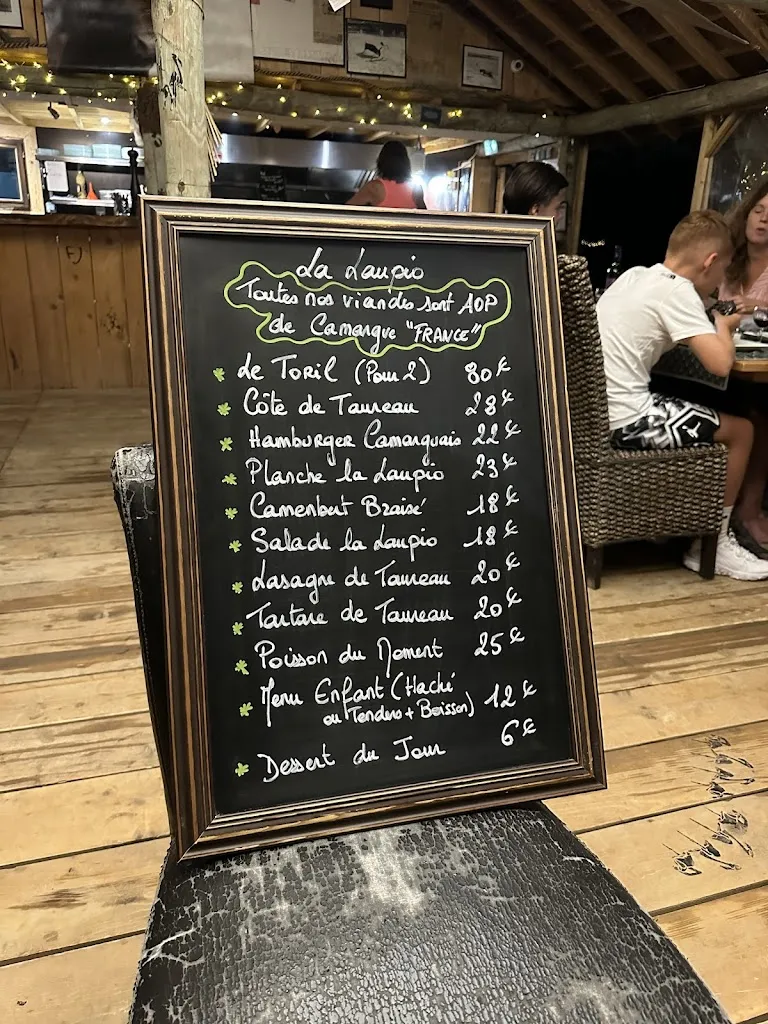 La Laupio
Toutes nos viandes sont AOP
de Camargue "FRANCE"
Le Toril (Pour 2) 80€
Côte de Taureau 28€
Hamburger Camarguais 22€
Planche la Laupio 23€
Camembert Braisé 18€
Salade la Laupio 18€
Lasagne de Taureau 20€
Tartare de Taureau 20€
Poisson du Moment 25€
Menu Enfant (Haché 12€
ou Tenders + Boisson)
Dessert du Jour 6€